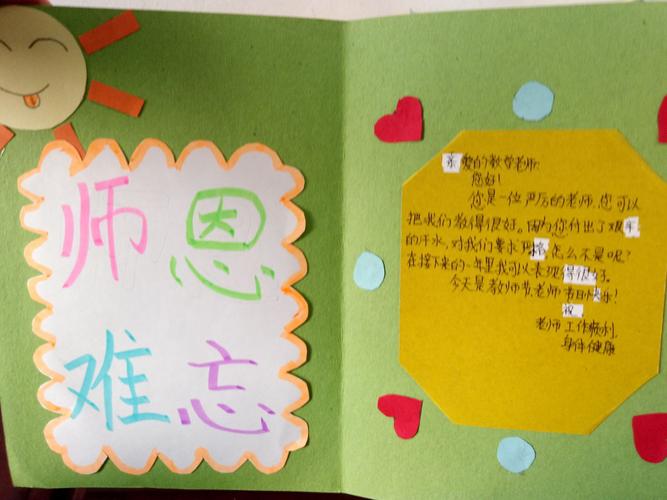 师恩
难忘
亲爱的数学老师:
您好!
您是一位严厉的老师,您可以
把我们教得很好。因为您付出了艰辛
的汗水,对我们要求严格,怎么不是呢?
在接下来的一年里我可以表现得很好。
今天是教师节,老师节日快乐!
祝
老师工作顺利,
身体健康